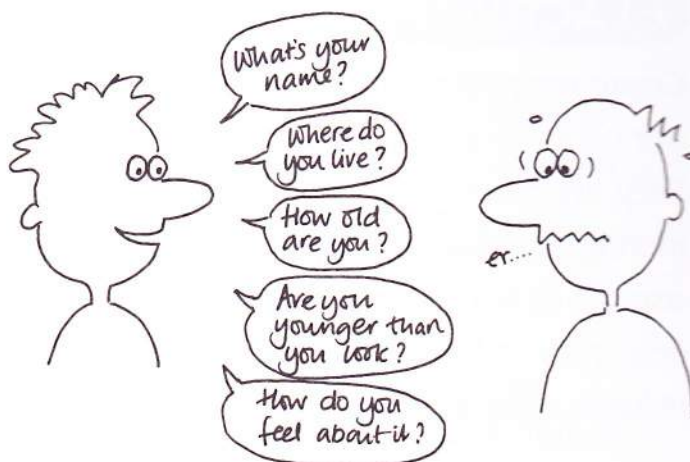 What's your
name?
Where do
you live?
How old
are you?
Are you
younger than
you look?
How do you
feel about it?
er.....